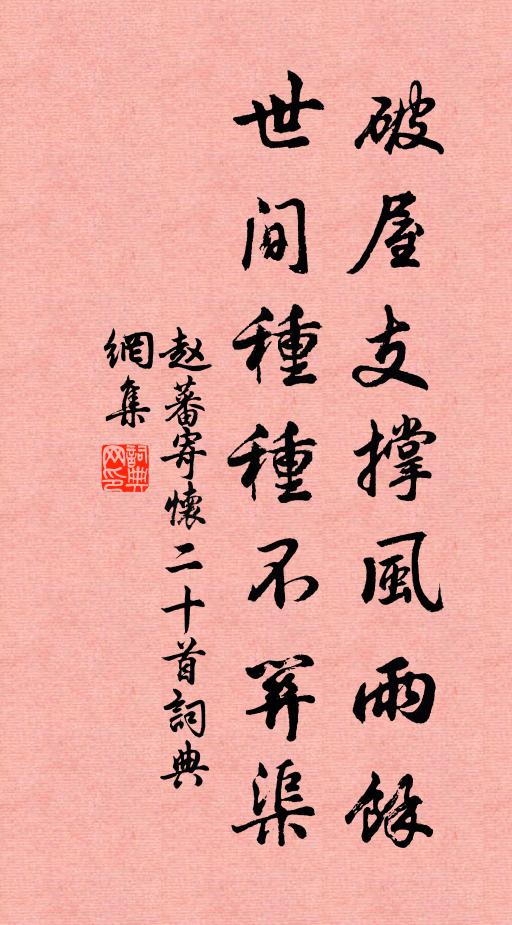 破屋支撐風雨餘
世间種種不關渠
赵蕃寄懷二十首詞典
網集
詞典
网印